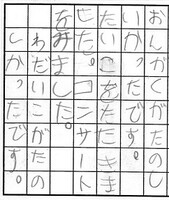 おんがくがたのし
かったです。
たいこをたたきま
した。コンサート
をみました。
わだいこがたの
しかったです。